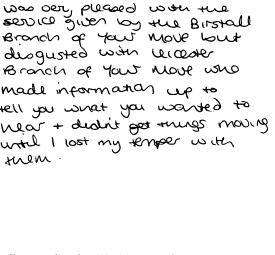 was very pleased with the
service given by the Birstall
Branch of Your Move but
disgusted with Leicester
Branch of Your Move who
made information up to
tell you what you wanted to
hear + didn't get things moving
until I lost my temper with
them.